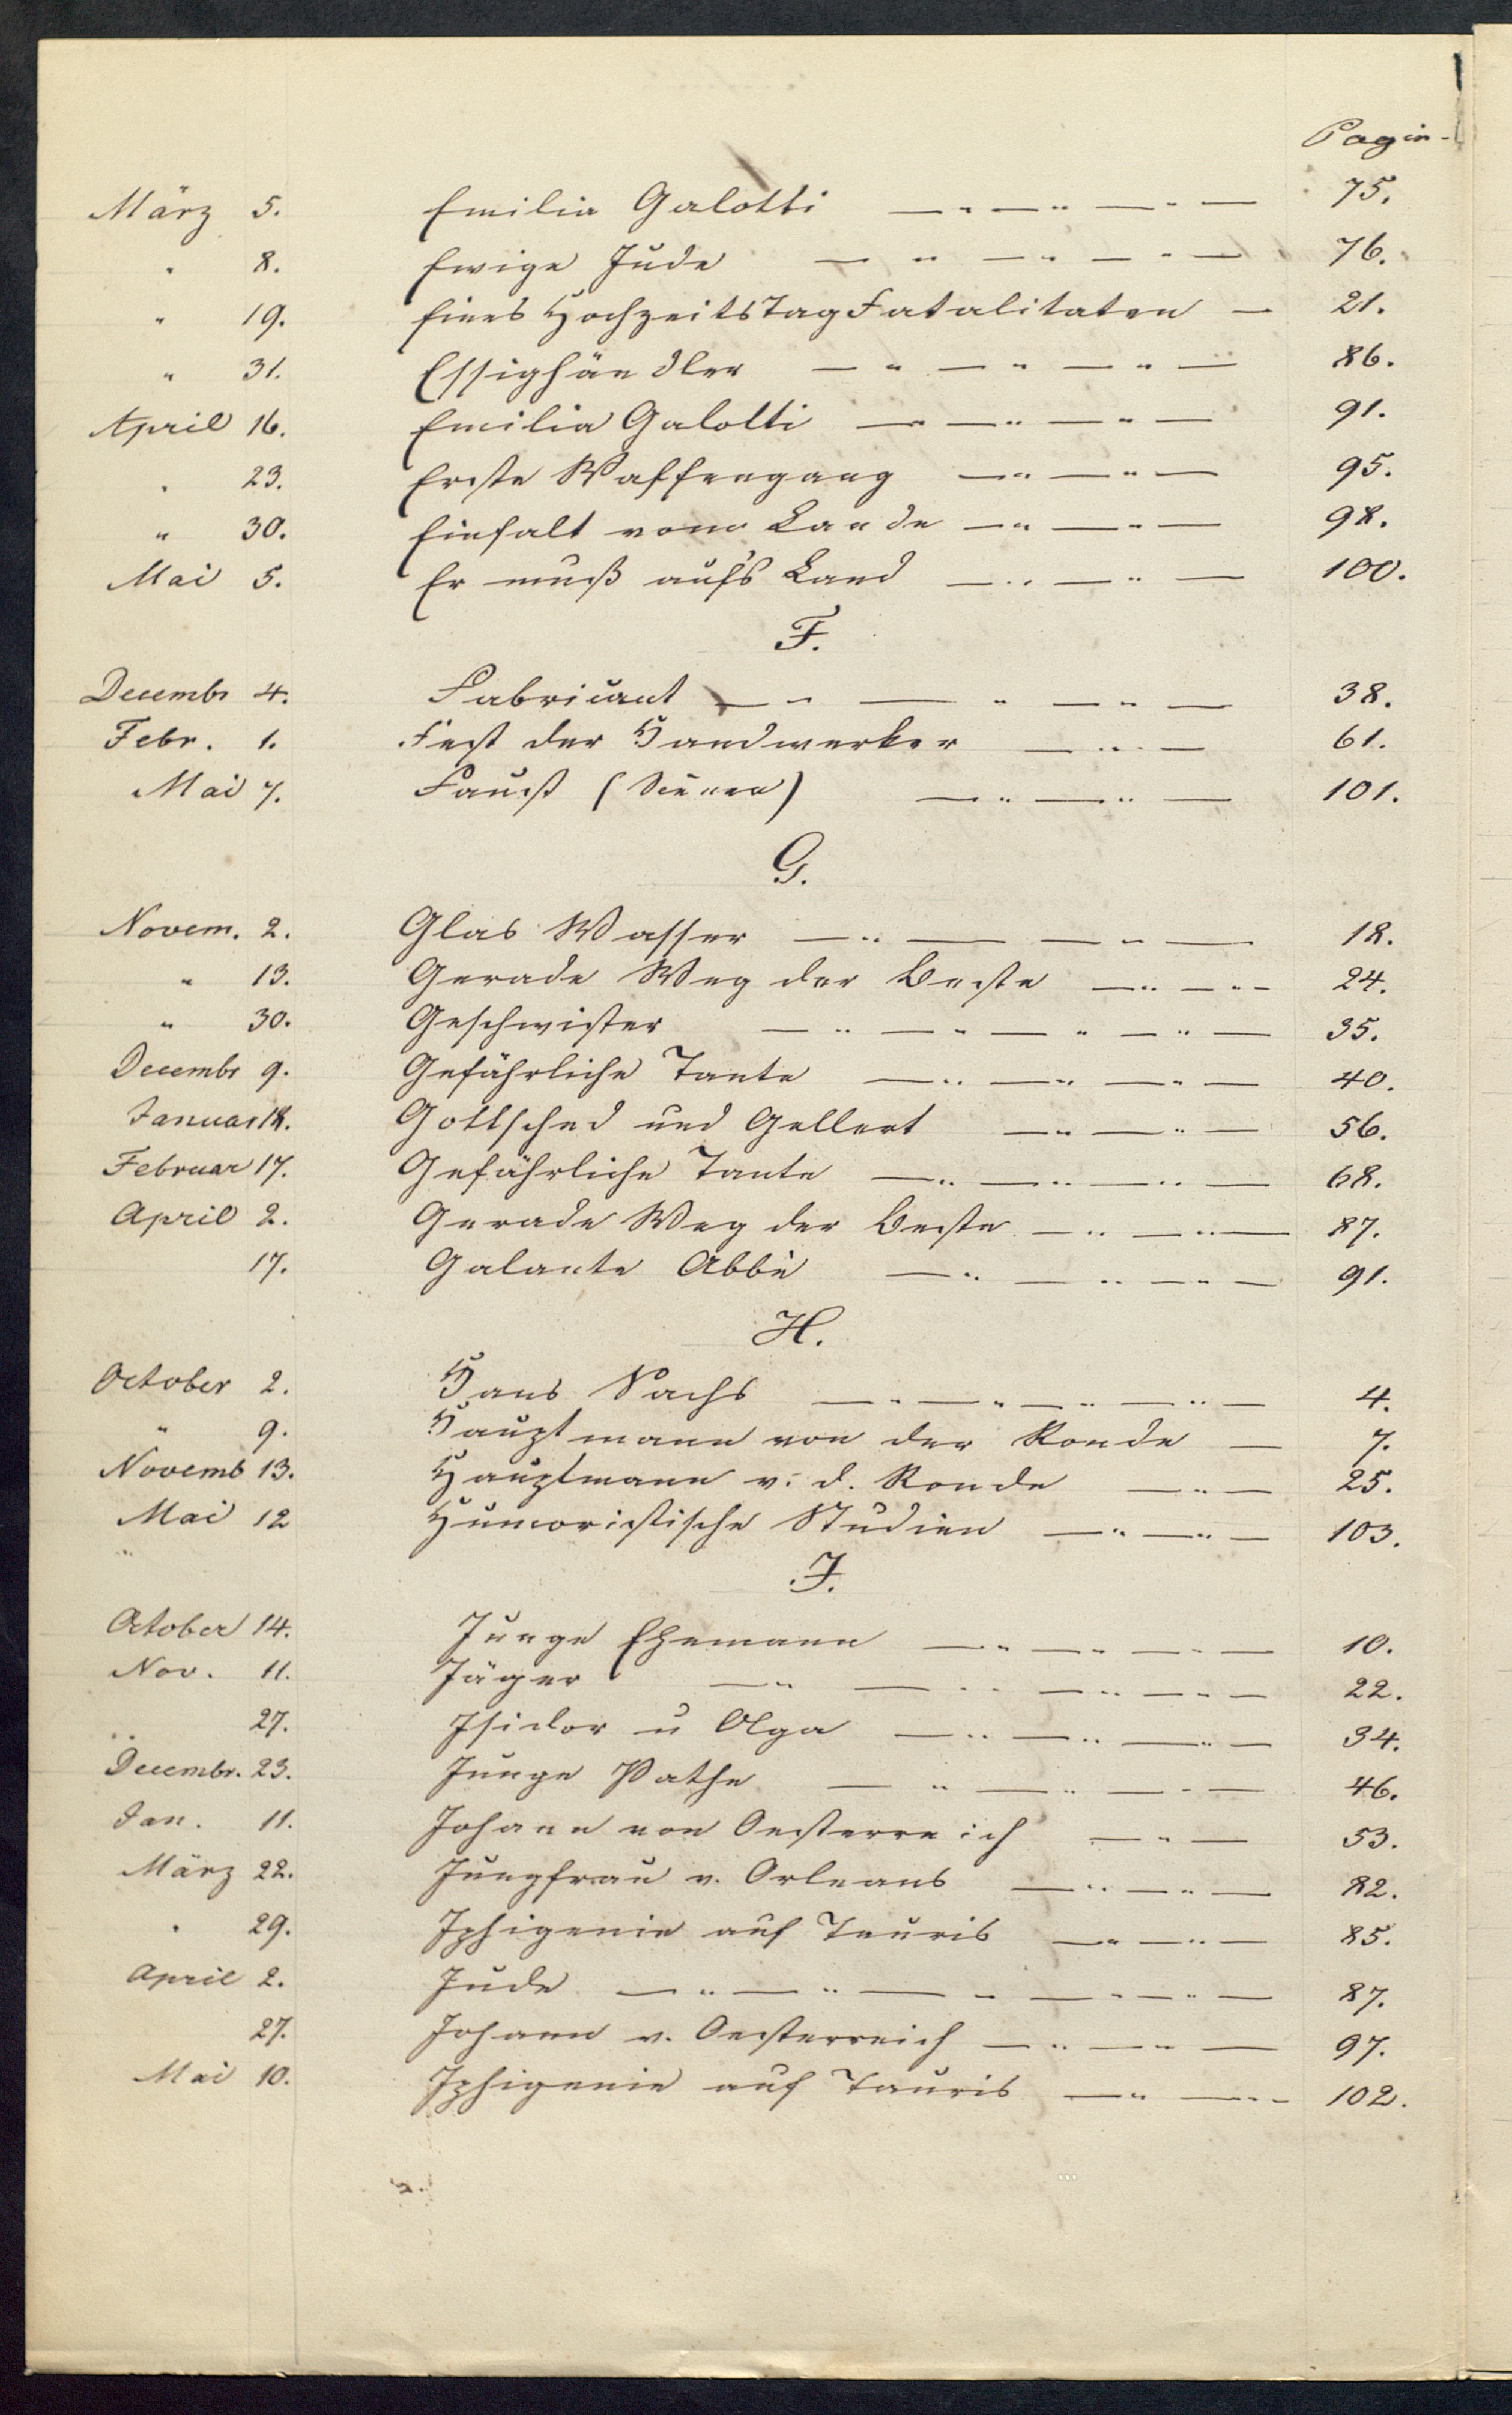 Pagin-
März 5. Emilia Galotti — " — " — " — 75.
" 8. Ewige Jude — " — " — " — 76.
" 19. Eines Hochzeits Tag Fatalitaten — 21.
" 31. Essighändler — " — " — " — 86.
April 16. Emilia Galotti — — " — " — 91.
" 23. Erste Waffengang — " — " — 95.
" 30. Einfalt vom Lande — " — " — 98.
Mai 5. Er muß auf's Land — " — " — 100.
F.
Decembr 4. Fabricant — " — " — " — 38.
Febr. 1. Fest der Handwerker — " — 61.
Mai 7. Faust (Scenen) — " — " — 101.
G.
Novem. 2. Glas Wasser — " — — " — 18.
" 13. Gerade Weg der Beste — " — " — 24.
" 30. Geschwister — " — " — " — " — 35.
Decembr 9. Gefährliche Tante — " — " — " — 40.
Januar 18. Gottsched und Gellert — " — " — 56.
Februar 17. Gefährliche Tante — " — " — " — 68.
April 2. Gerade Weg der Beste — " — " — 87.
17. Galante Abbè — " — " — " — 91.
H.
October 2. Hans Sachs — " — " — " — " — 4.
" 9. Hauptmann von der Ronde — 7.
Novemb 13. Hauptmann v. d. Ronde — " — 25.
Mai 12 Humoristische Studien — " — " — 103.
J.
October 14. Junge Ehemann — " — " — " — 10.
Nov. 11. Jäger — " — " — " — " — 22.
" 27. Isidor u Olga — " — " — " — 34.
Decembr. 23. Junge Pathe — " — " — " — 46.
Jan. 11. Johann von Oesterreich — " — 53.
März 22. Jungfrau v. Orleans — " — " — 82.
" 29. Iphigenie auf Tauris — " — " — 85.
April 2. Jude — " — " — " — " — " — 87.
27. Johann v. Oesterreich — " — " — 97.
Mai 10. Iphigenie auf Tauris — " — " — 102.